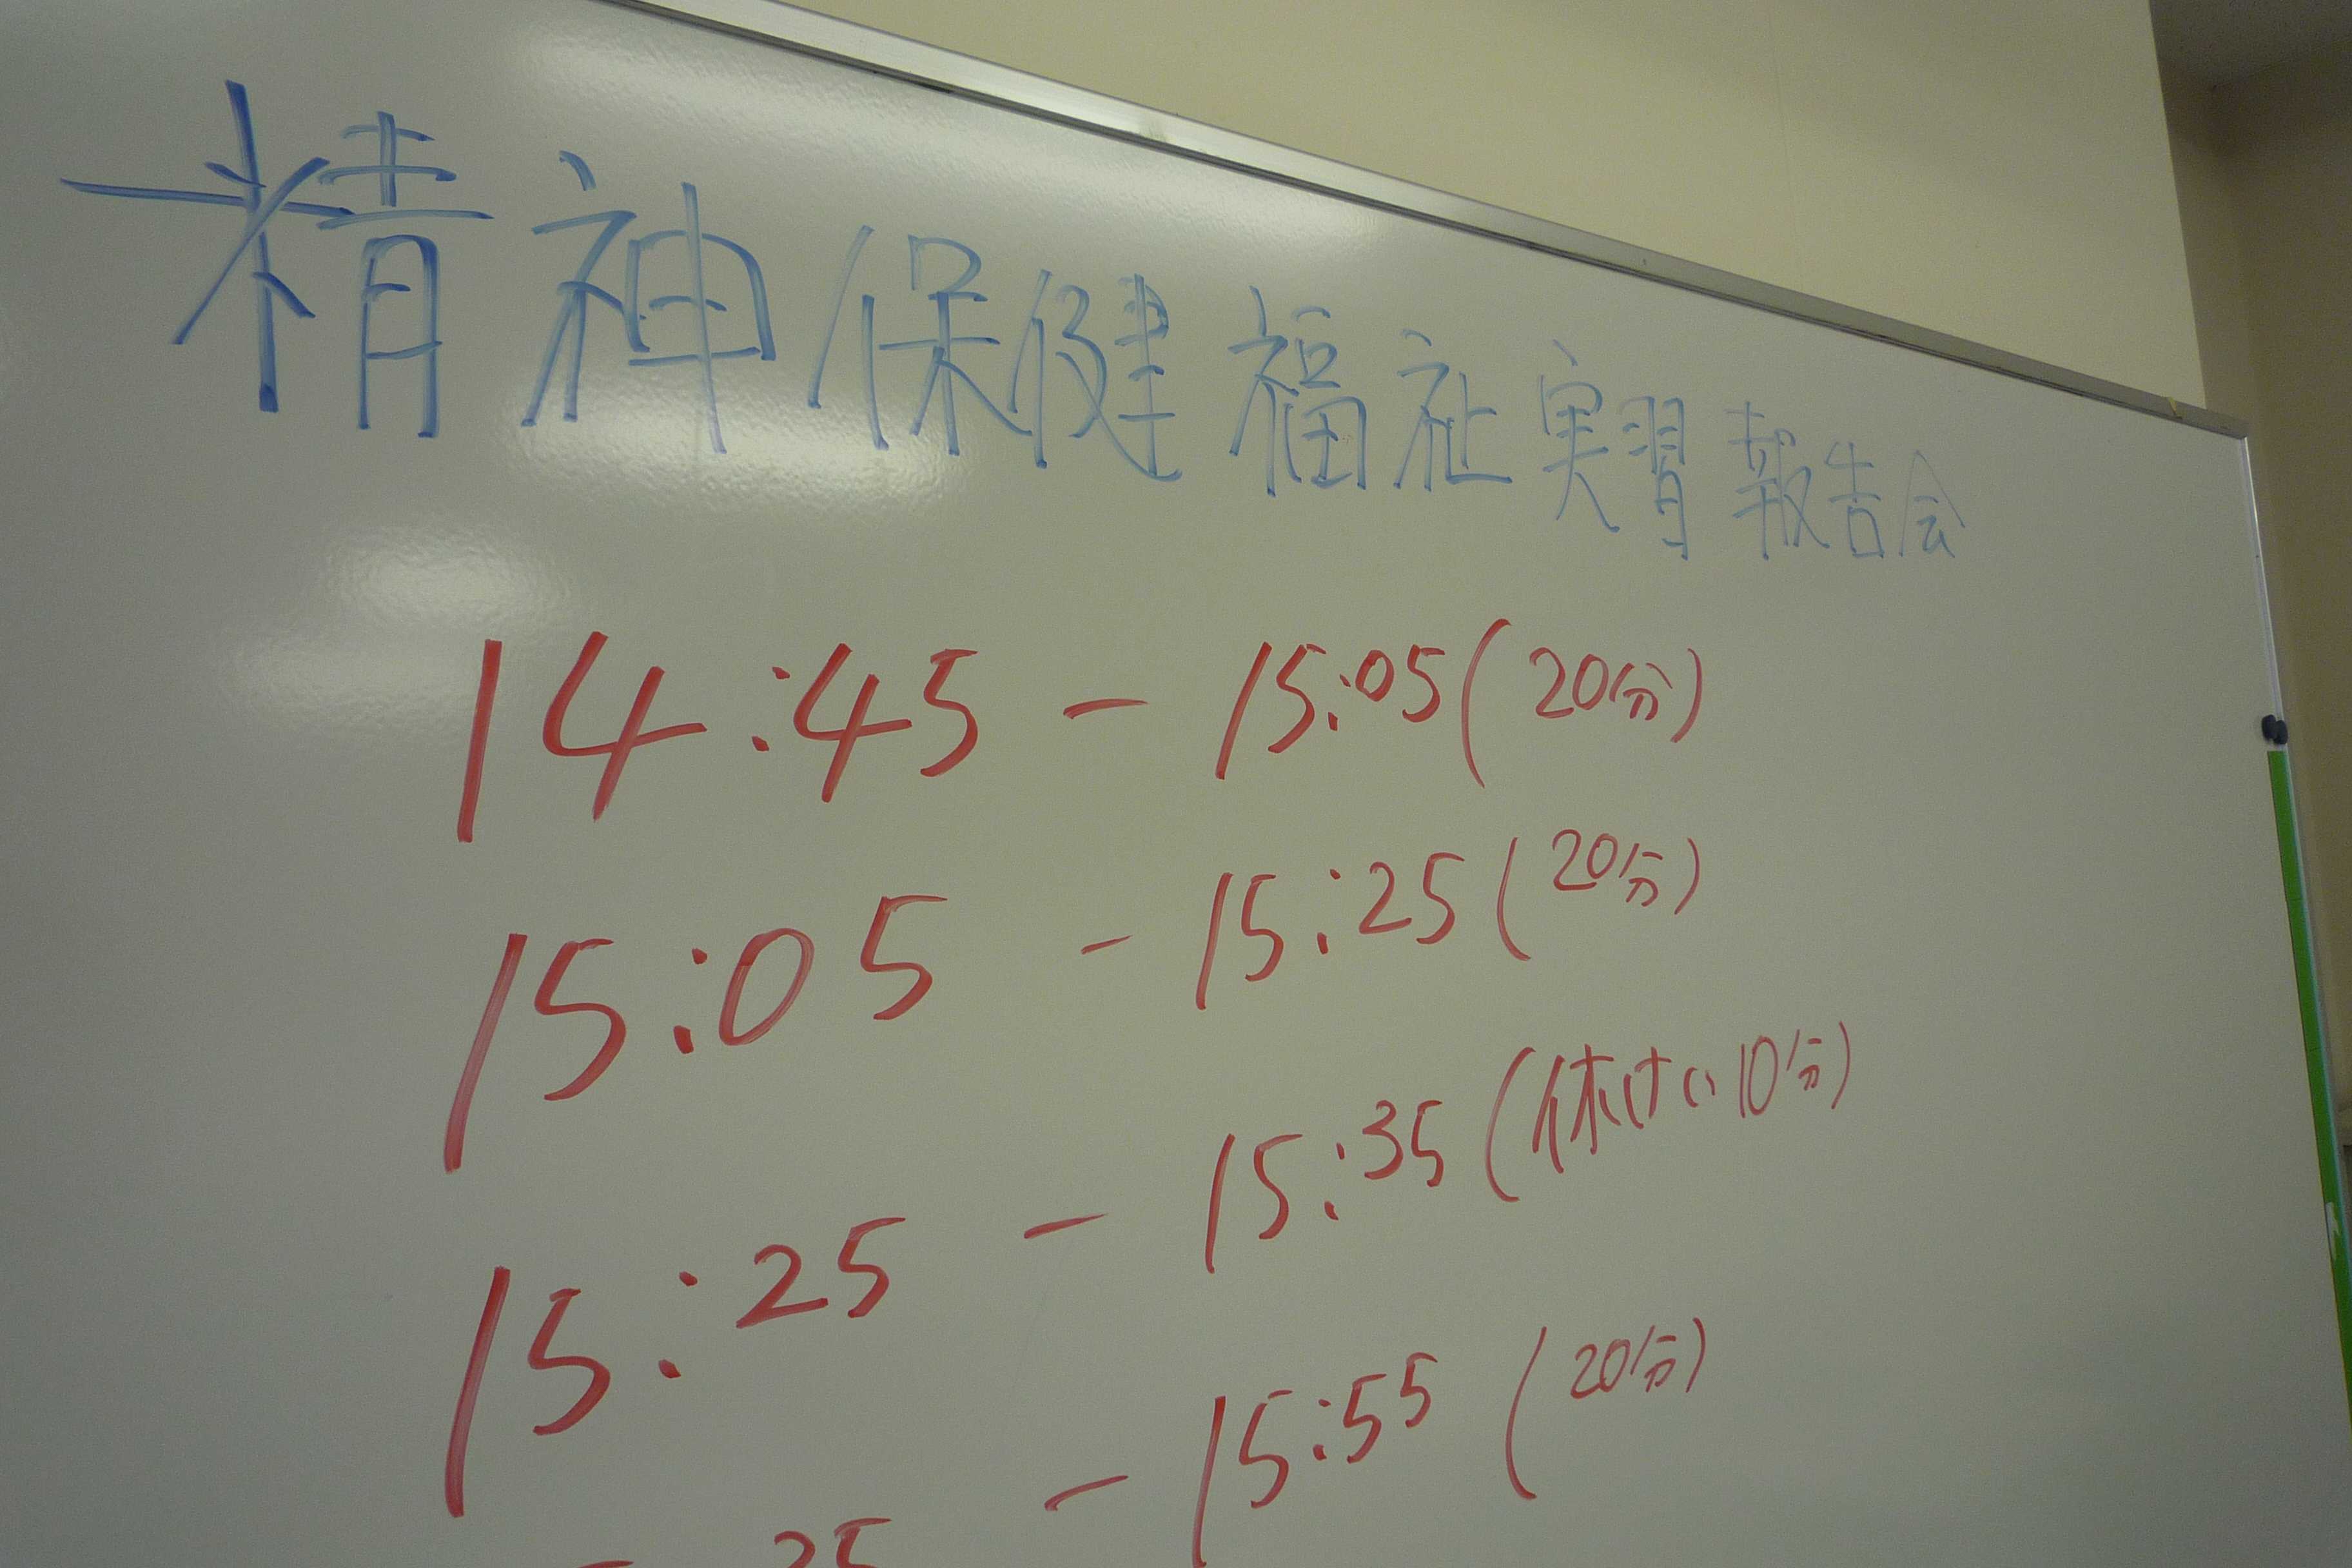 精神保健福祉実習報告会
14:45 - 15:05 (20分)
15:05 - 15:25 (20分)
15:25 - 15:35 (休けい10分)
35 - 15:55 (20分)